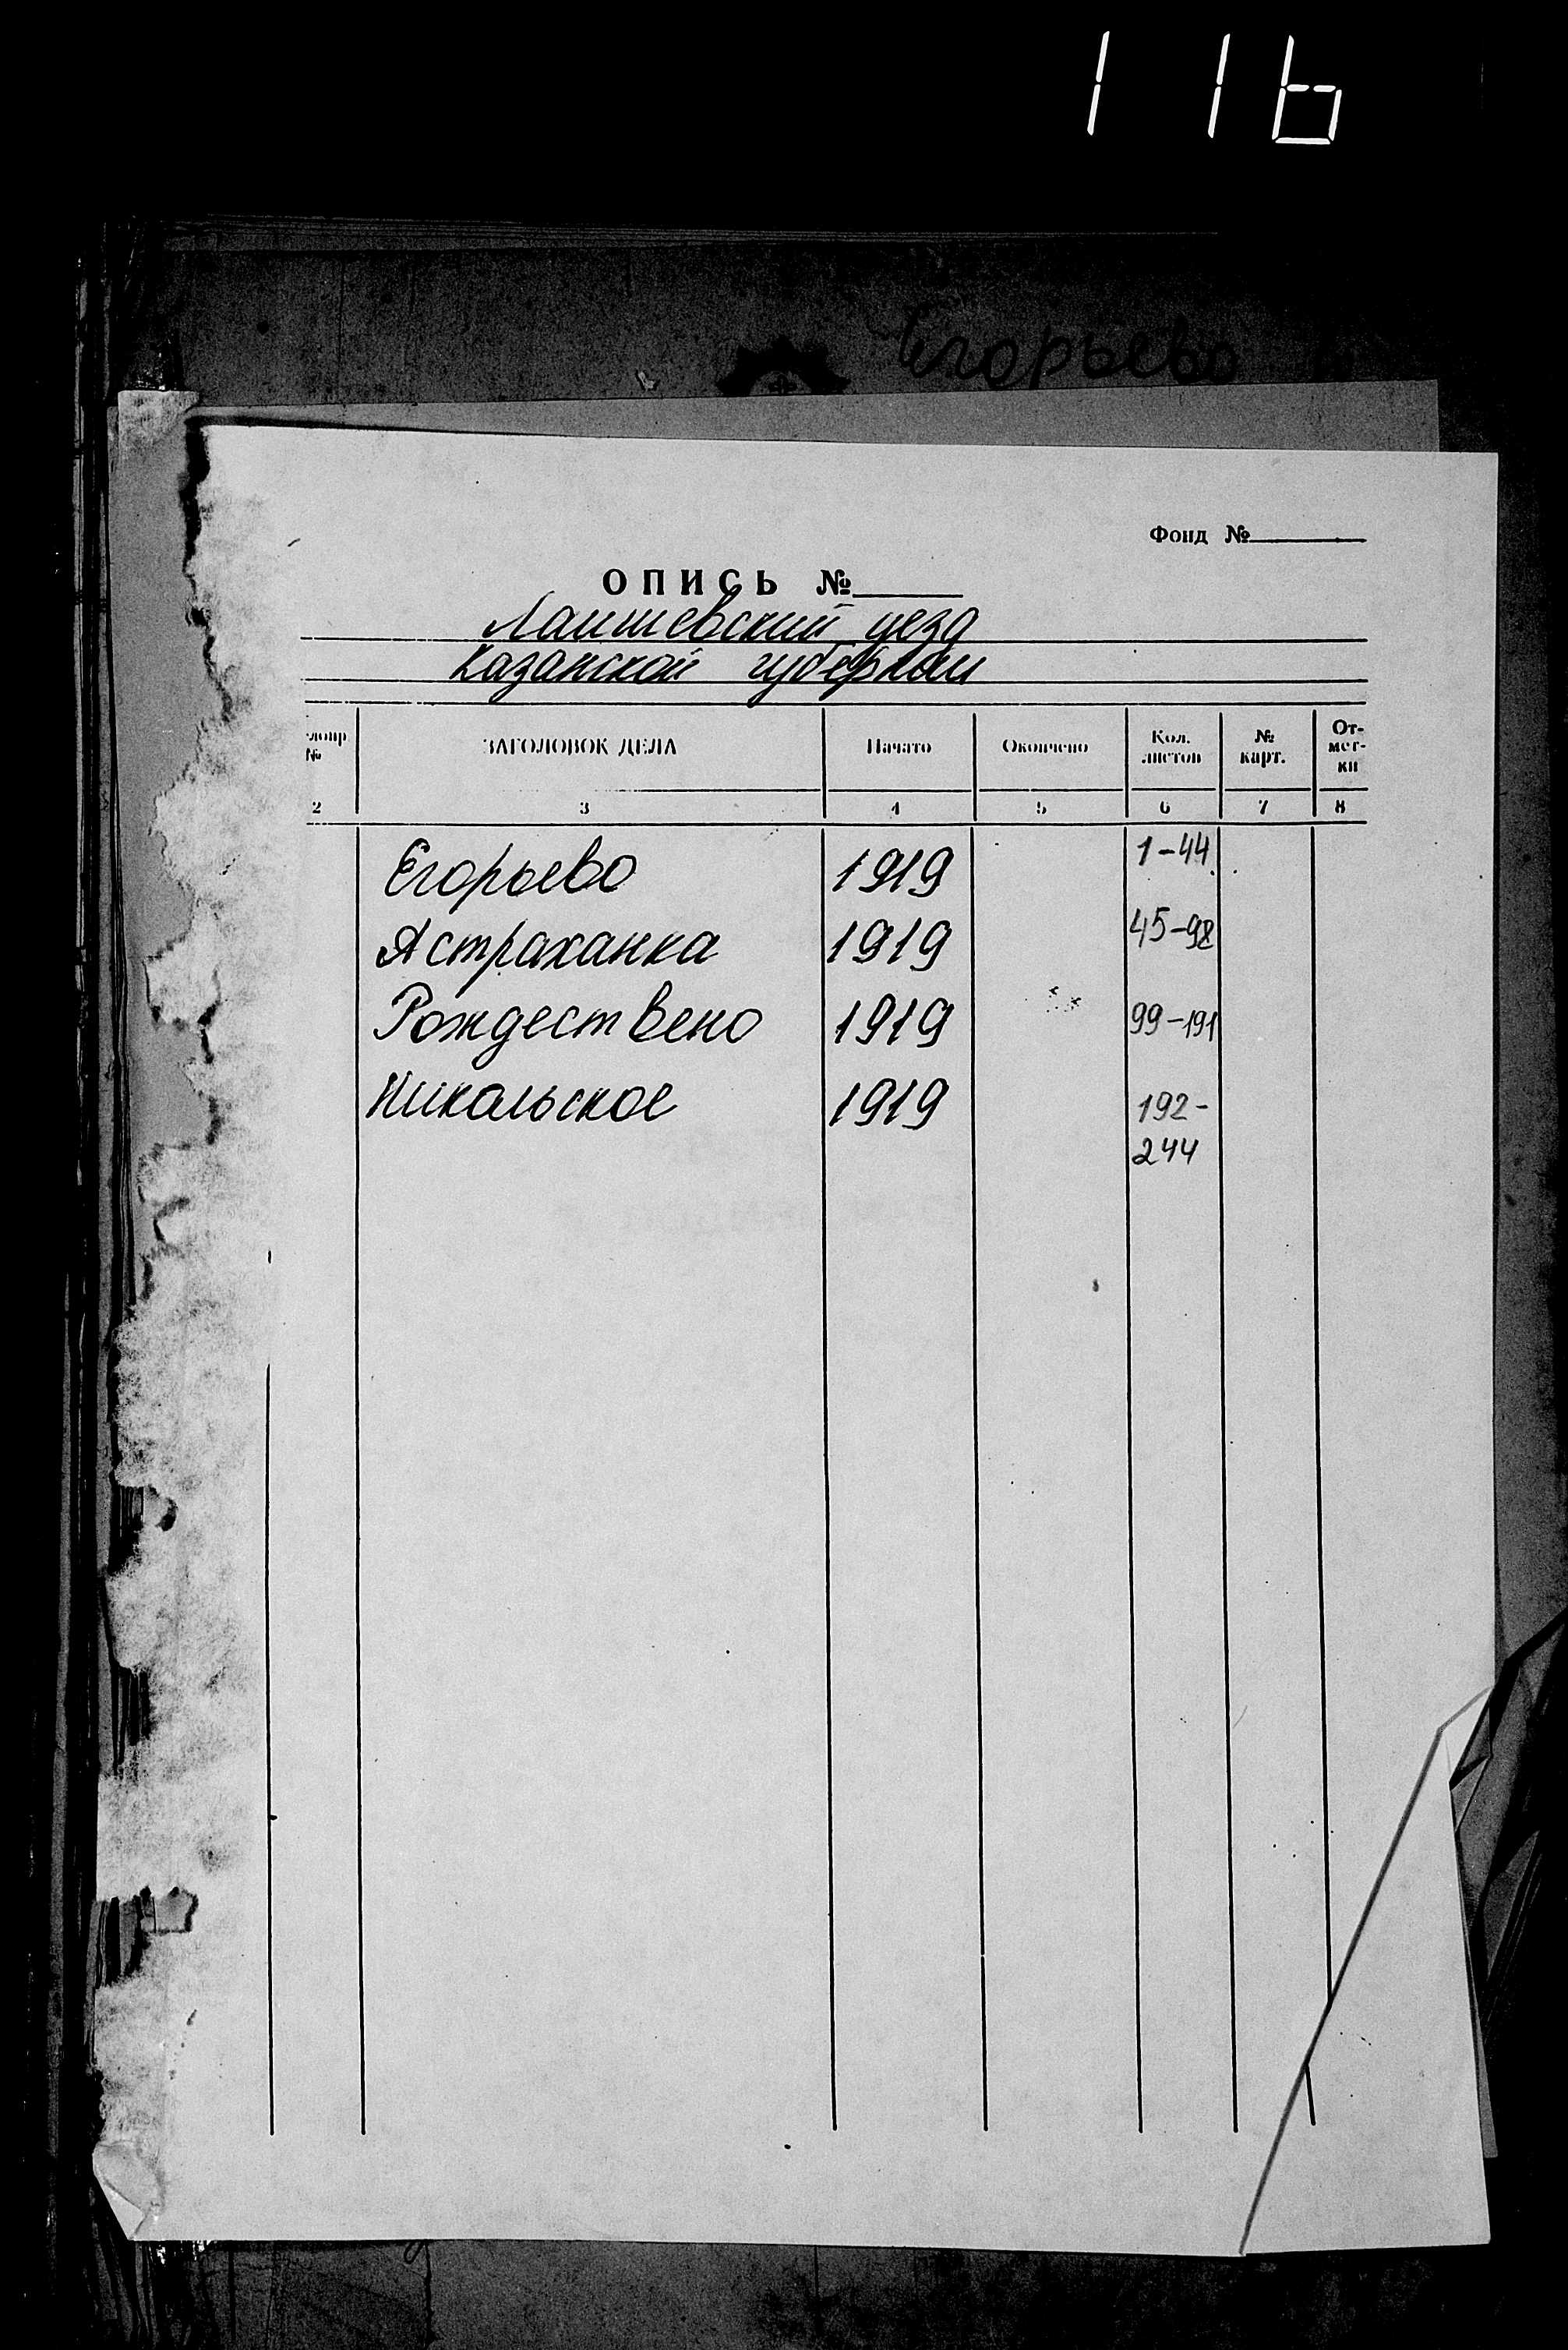 116
Егорьево
Фонд №
ОПИСЬ №
Лаишевский уезд
Казанской губернии
№
ЗАГОЛОВОК ДЕЛА Начато Окончено Кол. листов № карт. От-мет-ки
2 3 4 5 6 7 8
Егорьево 1919 1-44
Астраханка 1919 45-98
Рождествено 1919 99-191
Никольское 1919 192-
244